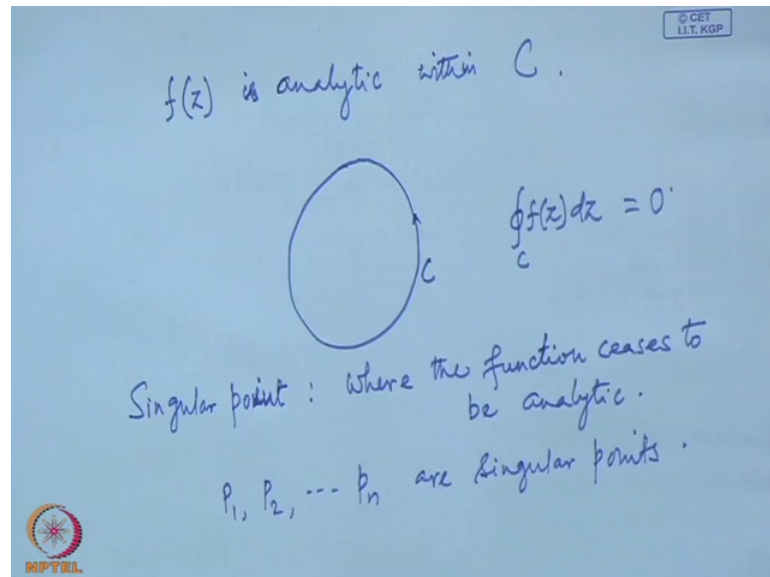 © CET
I.I.T. KGP
f(z) is analytic within C.
∮f(z)dz = 0
C
C
Singular point : where the function ceases to
be analytic.
P₁, P₂, ... Pₙ are singular points.
NPTEL